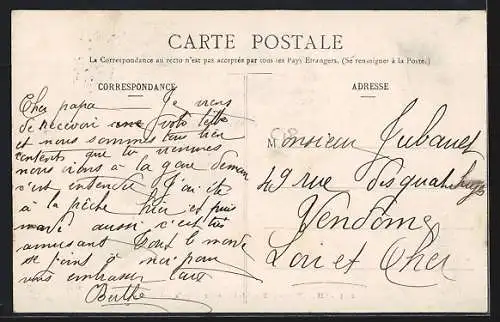 CARTE POSTALE
La Correspondance au recto n'est pas acceptée par tous les Pays Étrangers. (Se renseigner à la Poste.)
CORRESPONDANCE
ADRESSE
Cher papa Je viens
de recevoir votre lettre
et nous sommes tous bien
contents que tu viennes
nous irons à la gare demain
c'est entendu J'ai été
à la pêche hier et puis
mardi aussi c'est très
amusant Tout le monde
se joint à moi pour
vous embrasser tous
Berthe
Monsieur Jubault
49 rue
Vendôme
Loir et Cher